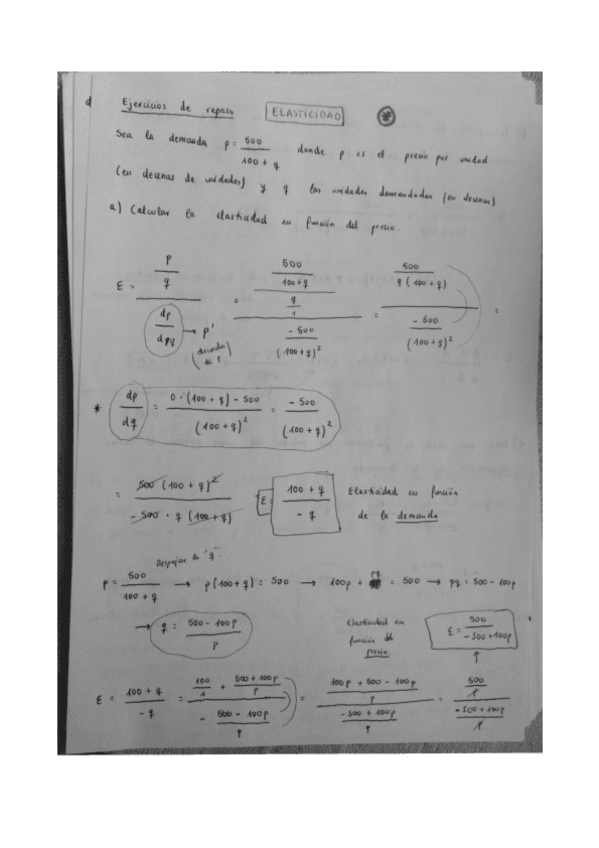 Ejercicios de repaso ELASTICIDAD
Sea la demanda p = 500 / (100 + q) donde p es el precio por unidad
(en decenas de unidades) y q las unidades demandadas (en decenas)
a) Calcular la elasticidad en función del precio.
ε = (p/q) / (dp/dq) = ((500/(100+q)) / (q/1)) / (-500/(100+q)²) = (500/(q(100+q))) / (-500/(100+q)²) =
→ p'
* dp/dq = (0·(100+q) - 500) / (100+q)² = -500 / (100+q)²
= 500(100+q)² / (-500·q(100+q)) ε = (100+q) / -q Elasticidad en función
de la demanda
Despejar la "q".
p = 500/(100+q) → p(100+q) = 500 → 100p + pq = 500 → pq = 500 - 100p
→ q = (500 - 100p) / p
Elasticidad en función del precio. ε = 500 / (-500+100p)
ε = (100+q) / -q = (100/1 + (500+100p)/p) / (-(500-100p)/p) = ((100p + 500 - 100p)/p) / ((-500+100p)/p) = (500/p) / ((-500+100p)/p)